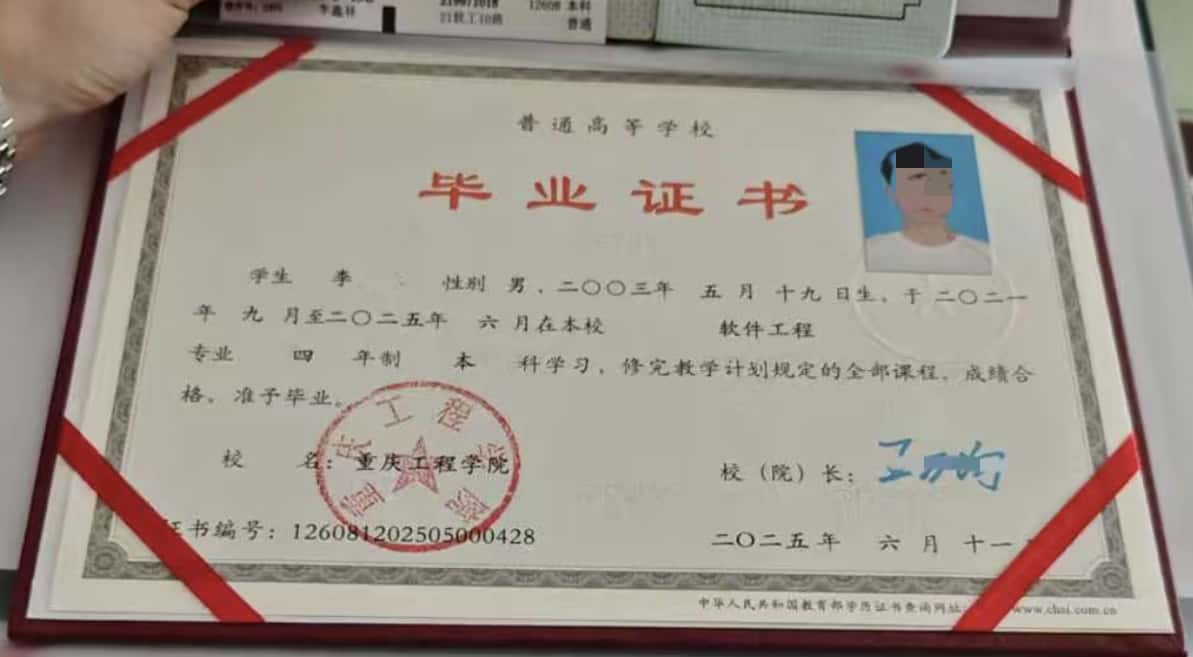 李鑫祥
12608 本科
21软工10班
普通
普通高等学校
毕业证书
学生 李 性别 男，二〇〇三年 五 月 十九 日生，于 二〇二一
年 九 月至二〇二五年 六 月在本校 软件工程
专业 四 年制 本 科学习，修完教学计划规定的全部课程，成绩合
格，准予毕业。
校 名：重庆工程学院
重庆工程学院
校（院）长：
证书编号：126081202505000428
二〇二五年 六 月 十一
中华人民共和国教育部学历证书查询网址：www.chsi.com.cn